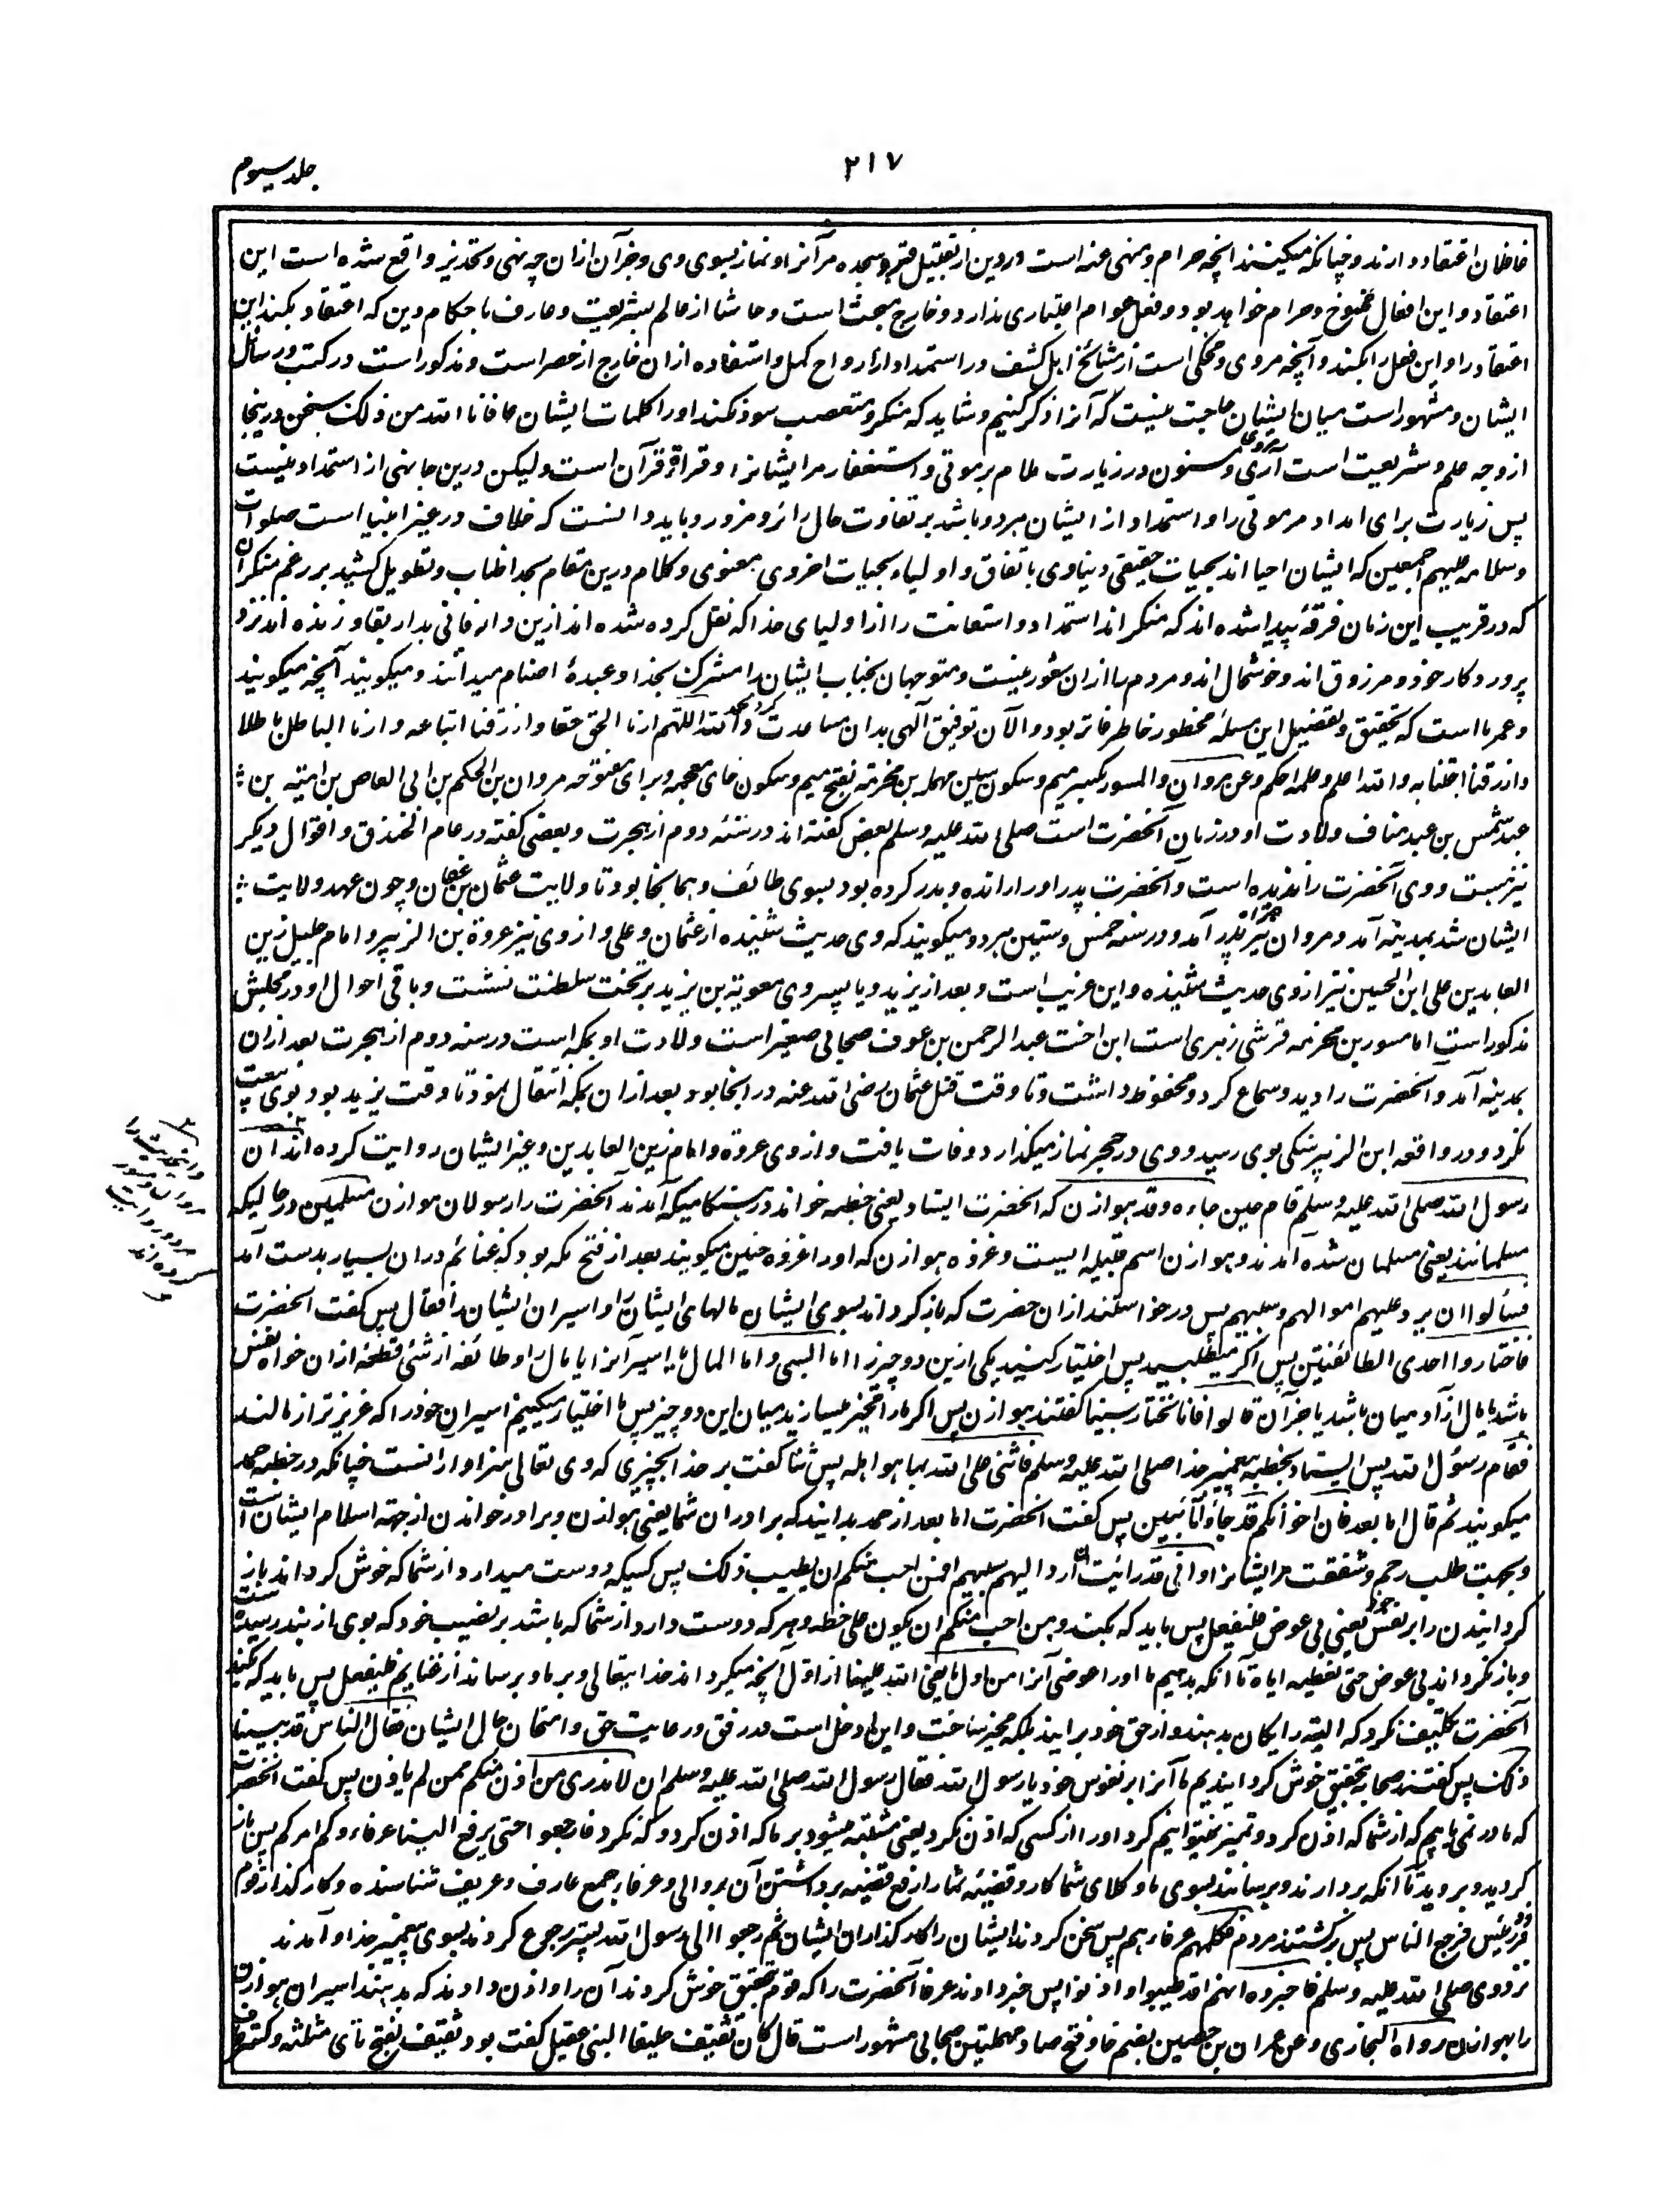 جلد سیوم
۲۱۷
غافلان اعتقاد دارند و چنانکه میکنند آنچه حرام و منهی عنه است در دین از تقبیل قبر و سجده مر آنرا و نماز بسوی وی و جز آن ازان چه نهی و تحذیر واقع شده است این
اعتقاد و این افعال ممنوع و حرام خواهد بود و فعل عوام اعتباری ندارد و خارج مبحث است و حاشا از عالم بشریعت و عارف باحکام دین که اعتقاد بکند این
اعتقاد را و این فعل را بکند و آنچه مروی و محکی است از مشائخ اهل کشف در استمداد از ارواح کمل و استفاده ازان خارج از حصر است و مذکور است در کتب و رسائل
ایشان و مشهور است میان ایشان حاجت نیست که آنرا ذکر کنیم و شاید که منکر و متعصب سود نکند او را کلمات ایشان عافانا الله من ذلک سخن درینجا
از وجه علم و شریعت است آری مروی و مسنون در زیارت سلام بر موتی و استغفار مر ایشانرا و قراءة قرآن است ولیکن درین جا نهی از استمداد نیست
پس زیارت برای امداد مر موتی را و استمداد از ایشان هر دو باشد بر تفاوت حال زائر و مزور و باید دانست که خلاف در غیر انبیا است صلوات
وسلامه علیهم اجمعین که ایشان احیا اند بحیات حقیقی دنیاوی باتفاق و اولیاء بحیات اخروی معنوی و کلام درین مقام بحد اطناب و تطویل کشید بر رغم منکران
که در قریب این زمان فرقه پیدا شده اند که منکر اند استمداد و استعانت را از اولیای خدا که نقل کرده شده اند ازین دار فانی بدار بقا و زنده اند نزد
پروردکار خود و مرزوق اند و خوشحال اند و مردم را ازان شعور نیست و متوجهان بجناب ایشان را مشرک بخدا و عبدهٔ اصنام میدانند و میکویند آنچه میکویند
و عمرها است که تحقیق و تفصیل این مسئله مخطور خاطر فاتر بود و الآن توفیق آلهی بدان مساعدت کرد والحمد لله اللهم ارنا الحق حقا وارزقنا اتباعه وارنا الباطل باطلا
وارزقنا اجتنابه والله اعلم وعلمه احکم وعن مروان والمسور بکسر میم و سکون سین مهمله بن مخرمة بفتح میم و سکون خای معجمه و برای مفتوحه مروان بن الحکم بن ابی العاص بن امیة بن
عبد شمس بن عبد مناف ولادت او در زمان آنحضرت است صلی الله علیه وسلم بعض کفته اند در سنه دوم از هجرت و بعضی کفته در عام الخندق و اقوال دیکر
نیز هست و وی آنحضرت را ندیده است و آنحضرت پدر او را رانده و بدر کرده بود بسوی طائف و هما نجا بود تا ولایت عثمان بن عفان و چون عهد ولایت
ایشان شد بمدینه آمد و مروان نیز همراه پدر آمد و در سنه خمس و ستین مرد و میکویند که وی حدیث شنیده از عثمان و علی و از وی نیز عروة بن الزبیر و امام جلیل زین
العابدین علی ابن الحسین نیز از وی حدیث شنیده و این غریب است و بعد از یزید و یا پسر وی معویة بن یزید بر تخت سلطنت نشست و باقی احوال او در محلش
مذکور است اما مسور بن مخرمه قرشی زهری است ابن اخت عبد الرحمن بن عوف صحابی صغیر است ولادت او بمکه است در سنه دوم از هجرت بعد ازان
بمدینه آمد و آنحضرت را دید و سماع کرد و محفوظ داشت و تا وقت قتل عثمان رضی الله عنه در انجا بود بعد ازان بمکه انتقال نمود تا وقت یزید بود و بوی بیعت
نکرد و در واقعه ابن الزبیر سنکی بوی رسید و وی در حجر نماز میکذارد و وفات یافت و از وی عروة و امام زین العابدین و غیر ایشان روایت کرده اند ان
رسول الله صلی الله علیه وسلم قام حین جاءه وفد هوازن که آنحضرت ایستاد یعنی خطبه خواند در هنکامیکه آمدند آنحضرت را رسولان هوازن مسلمین در حالیکه
مسلمانند یعنی مسلمان شده آمدند و هوازن اسم قبیله ایست و غزوه هوازن که او را غزوه حنین میکویند بعد از فتح مکه بود که غنائم دران بسیار بدست آمد
فسألوا ان یرد علیهم اموالهم وسبیهم پس درخواستند ازان حضرت که باز کرداند بسوی ایشان مالهای ایشان را و اسیران ایشان را فقال پس کفت آنحضرت
فاختاروا احدی الطائفتین پس اکر میطلبید پس اختیار کنید یکی ازین دو چیز را اما السبی واما المال یا اسیر انرا یا مال را و طائفه از شئ قطعه ازان خواه نفس
باشد یا مال از آدمیان باشد یا جز آن قالوا فانا نختار سبینا کفتند هوازن پس اکر ما را مخیر میسازید میان این دو چیز پس ما اختیار میکنیم اسیران خود را که عزیز تر از مالند
فقام رسول الله پس ایستاد بخطبه پیغمبر خدا صلی الله علیه وسلم فاثنی علی الله بما هو اهله پس ثنا کفت بر خدا بچیزی که وی تعالی سزاوار انست چنانکه در خطبه حمد
میکویند ثم قال اما بعد فان اخوانکم قد جاؤا تائبین پس کفت آنحضرت اما بعد از حمد بدانید که برادران شما یعنی هوازن و برادر خواندن از جهة اسلام ایشان است
و بجهت طلب رحم و شفقت مر ایشانرا وانی قد رأیت ان ارد الیهم سبیهم فمن احب منکم ان یطیب ذلک پس کسیکه دوست میدارد از شما که خوش کرداند باز
کردانیدن را بر نفس خود یعنی بی عوض فلیفعل پس باید که بکند ومن احب منکم ان یکون علی حظه و هر که دوست دارد از شما که باشد بر نصیب خود که بوی از بند رسیده است
و باز نکرداند بی عوض حتی نعطیه ایاه تا آنکه بدهیم ما او را عوض آنرا من اول ما یفئ الله علینا از اول آنچه میکرداند خدایتعالی بر ما و برساند از غنایم فلیفعل پس باید که بکند
آنحضرت تکلیف نکرد که البته رایکان بدهند و از حق خود برایند بلکه مخیر ساخت و این ادخل است در رفق و رعایت حق و امتحان حال ایشان فقال الناس قد طیبنا
ذلک پس کفتند صحابه بتحقیق خوش کردانیدیم ما آنرا بر نفوس خود یا رسول الله فقال رسول الله صلی الله علیه وسلم انا لا ندری من اذن منکم ممن لم یأذن پس کفت آنحضرت
که ما در نمی یابیم که از شما که اذن کرد و تمیز نمیتوانیم کرد او را از کسی که اذن نکرد یعنی مشتبه میشود بر ما که اذن کرد و که نکرد فارجعوا حتی یرفع الینا عرفاءکم امرکم پس باز
کردید و بروید تا آنکه بردارند و برسانند بسوی ما وکلای شما کار و قضیه شما را رفع قضیه برداشتن آن بر والی و عرفا جمع عارف و عریف شناسنده و کارکذار قوم
فرجع الناس پس برکشتند مردم فکلمهم عرفاءهم پس سخن کردند ایشان را کارکذاران ایشان ثم رجعوا الی رسول الله پستر رجوع کردند بسوی پیغمبر خدا و آمدند
نزد وی صلی الله علیه وسلم فاخبروه انهم قد طیبوا واذنوا پس خبر دادند عرفا آنحضرت را که قوم بتحقیق خوش کردند آن را و اذن دادند که بدهند اسیران هوازن
را بهوازن رواه البخاری وعن عمران بن حصین بضم حا و فتح صاد مهملتین صحابی مشهور است قال کان ثقیف حلیفا لبنی عقیل کفت بود ثقیف بفتح ثای مثلثه و کسر قاف